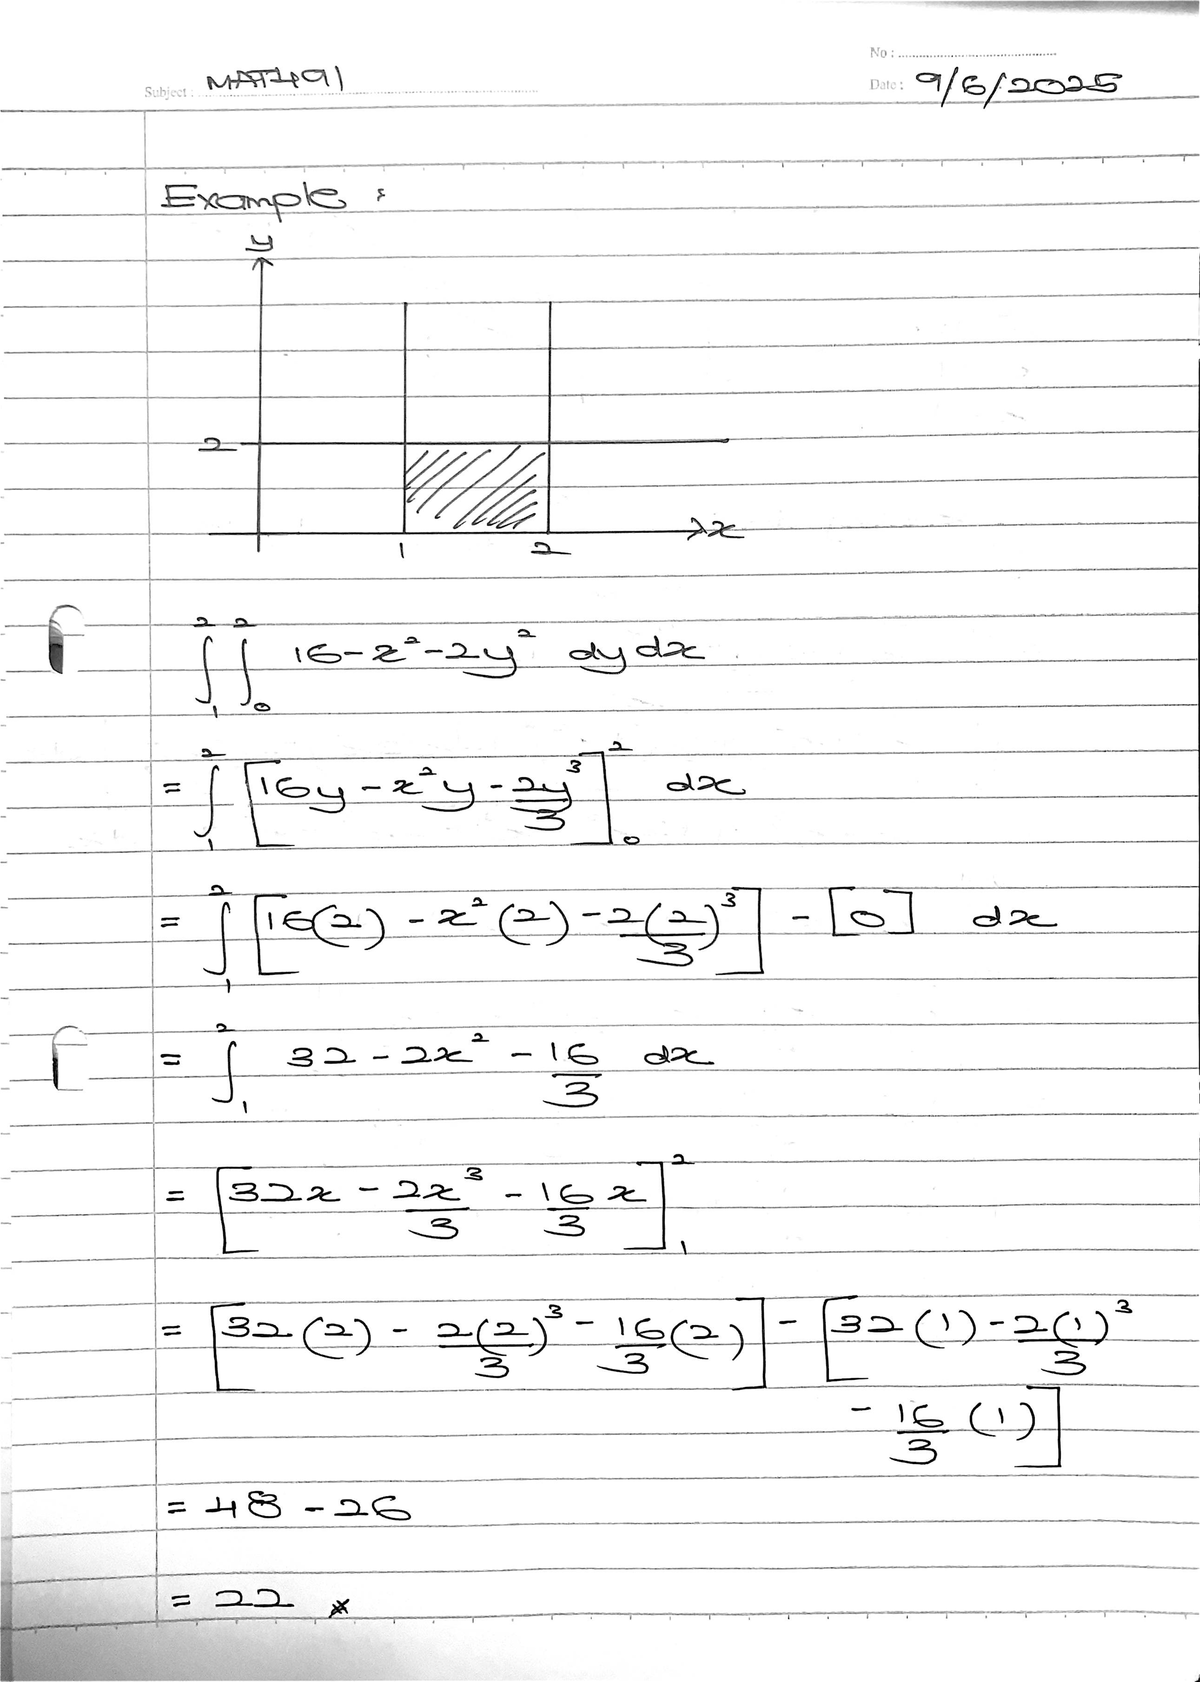 No :
Subject : MAT491
Date : 9/6/2025
Example :
y
2
x
1 2
∫₁² ∫₀² 16-x²-2y² dy dx
= ∫₁² [16y - x²y - 2y³/3]₀² dx
= ∫₁² [16(2) - x²(2) - 2(2)³/3] - [0] dx
= ∫₁² 32 - 2x² - 16/3 dx
= [32x - 2x³/3 - 16/3 x]₁²
= [32(2) - 2(2)³/3 - 16/3 (2)] - [32(1) - 2(1)³/3
- 16/3 (1)]
= 48 - 26
= 22 *